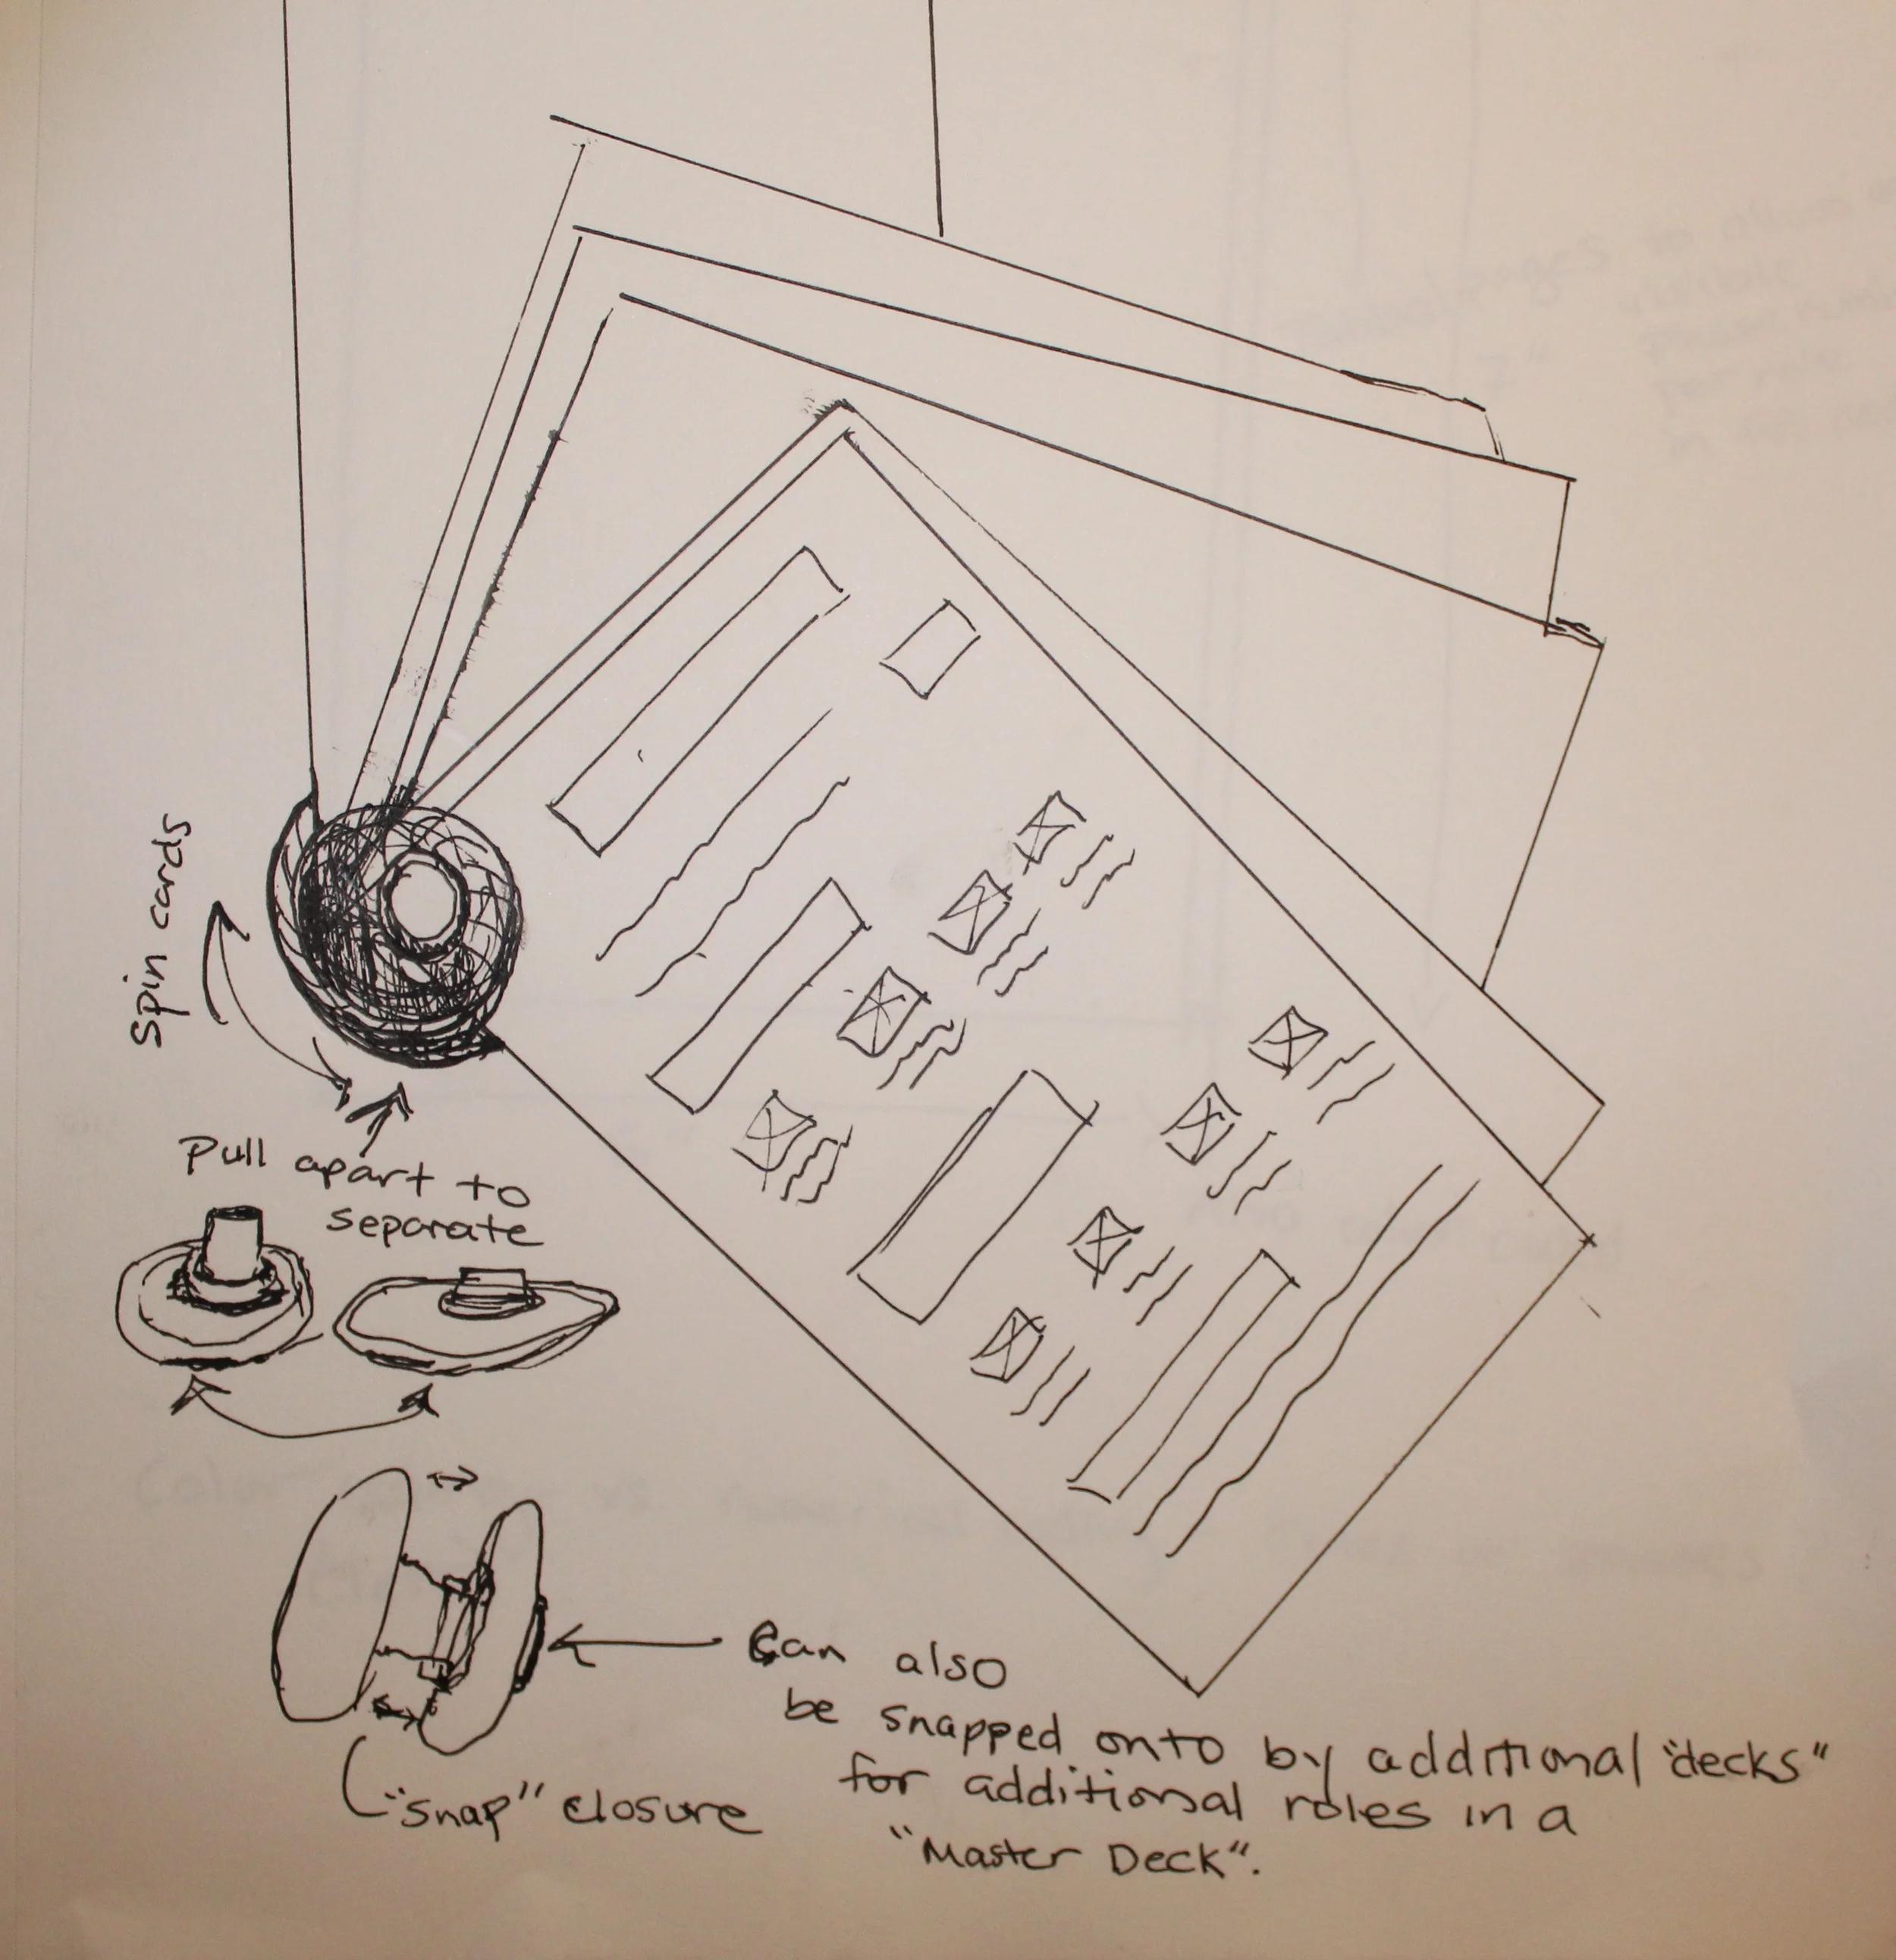 Spin cards
Pull apart to
separate
Can also
be snapped onto by additional "decks"
for additional roles in a
"Master Deck".
"snap" closure